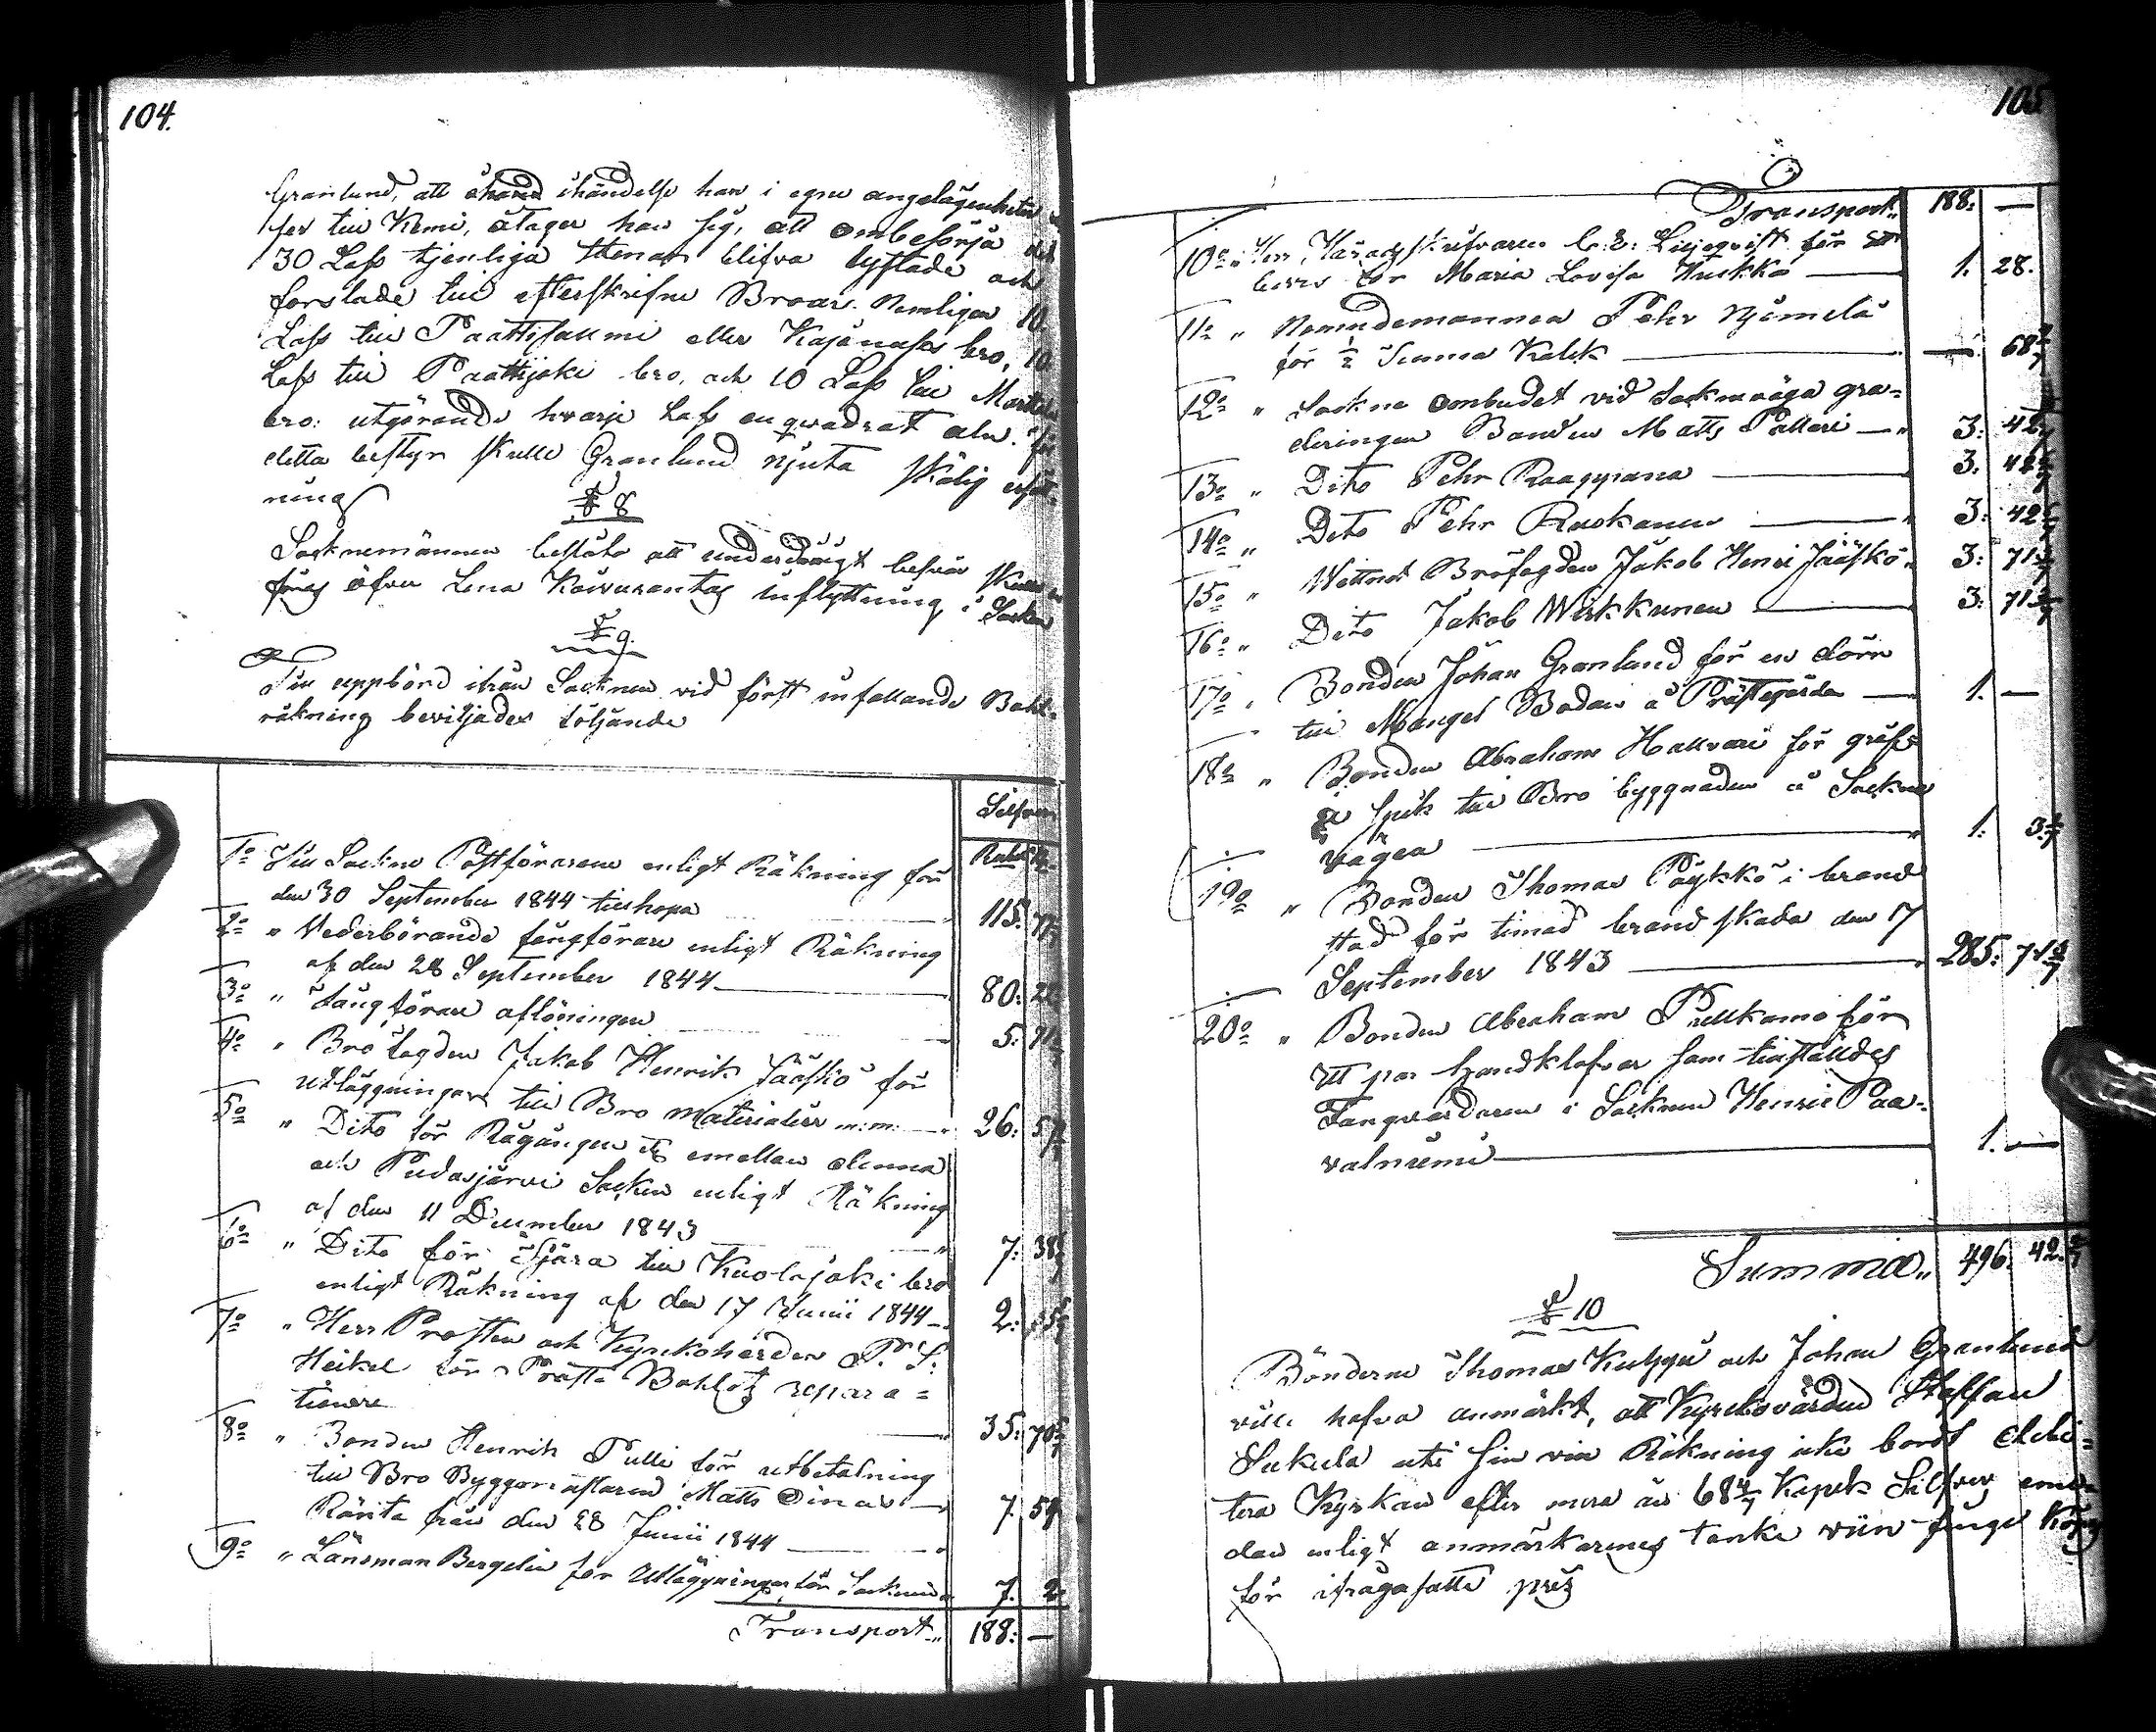 104.
Granlund, att ihändelse han i egne angelägenheter
far till Kemi, åtager han sig, att ombesörja det
30 Lass tjenliga stenar blifva lyftade och
forslade till efterskrifne Broar. Nemligen 10.
Lass till Paattisalmi eller Kajanuses bro, 10.
Lass till Paattijoki bro, och 10 Lass till
bro: utgörande hvarje Lass en qwadrat aln. för
detta bestyr skulle Granlund njuta skälig ersätt-
ning
§ 8
Socknemännen beslöto att underdånigt besvär skulle
öfver Lena Koivurantas inflyttning i Socken
§ 9.
Till uppbörd ifrån Socknen vid först infallande Bohl-
räkning beviljades följande
Silfver
Rubel Kop.
1o Till Sockne Postförarene enligt Räkning för
den 30 September 1844 tillhopa 115. 77
2o " Vederbörande fångförare enligt Räkning
af den 28 September 1844 80. 22
3o " Fångförare aflöningen 5. 71
4o " Brofogden Jakob Henrik Jääskö för
utläggningar till Bro materialier m:m: 26: 57
5o " Dito för Rågången emellan denna
och Pudasjärvi Socken enligt Räkning
af den 11 December 1843 7: 38
6o " Dito för Tjära till Kuolajoki bro
enligt Räkning af den 17 Junii 1844 2:
7o " Herr Prosten och Kyrkoherden
Heikel för Präste Bohlets repara=
tioner 35: 70
8o " Bonden Henrik Pulli för utbetalning
till Bro Byggmästaren Matts
Ränta från den 28 Junii 1844 7. 57
9o " Länsman Bergelin för Utläggningar för Socknen 7. 2
Transport " 188: —
105
Transport " 188: —
10o " Herr Häradsskrifvaren C. E. Liljeqvist för ett
för Maria Lovisa Huskko 1. 28.
11o " Nemndemannen Pehr Njemelä
för ½ Tunna Kalk — 68 4/7
12o " Sockne ombudet vid Socknevägs gra=
deringen Bonden Matts Pallari 3: 42 6/7
13o " Dito Pehr Raappana 3. 42 6/7
14o " Dito Pehr Ruokanen 3: 42 6/7
15o " Bröfogden Jakob Henri Jääskö 3: 71 3/7
16o " Dito Jakob Wirkkunen 3: 71 3/7
17o " Bonden Johan Granlund för en dörr
till Mangel Bodan å Prästegården 1. —
18o " Bonden Abraham Hallvari för
spik till Bro byggnaden å Sockne
vägen 1. 3 4/7
19o " Bonden Thomas Päykkö i brand
stod för timad brandskada den 17
September 1843 285: 71 3/7
20o " Bonden Abraham Pullkamo för
ett par handklofvar som tillställdes
Fångvårdaren i Socknen Henric Paa=
valniemi 1. —
Summa " 496. 42 6/7
§ 10
Bönderne Thomas Kulppi och Johan Granlund
ville hafva anmärkt, att Kyrkovärden Staffan
Sukula uti sin vin Räkning icke bordt debi=
tera Kyrkan efter mera än 68 4/7 Kopek Silfver
dan enligt anmärkarenes tanke vin fingos köpas
för ifrågasatte pris